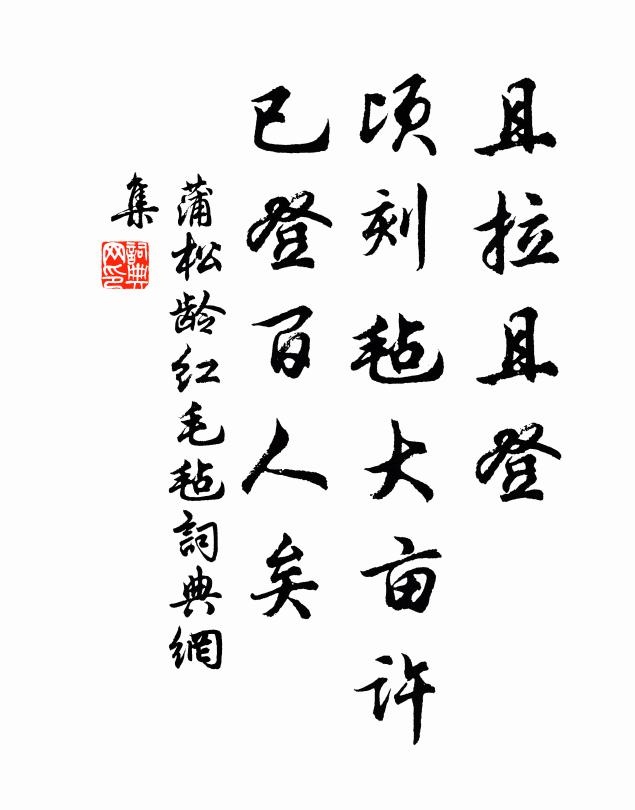 且拉且登
顷刻毡大亩许
已登百人矣
蒲松龄红毛毡詞典網
集
詞典
网印